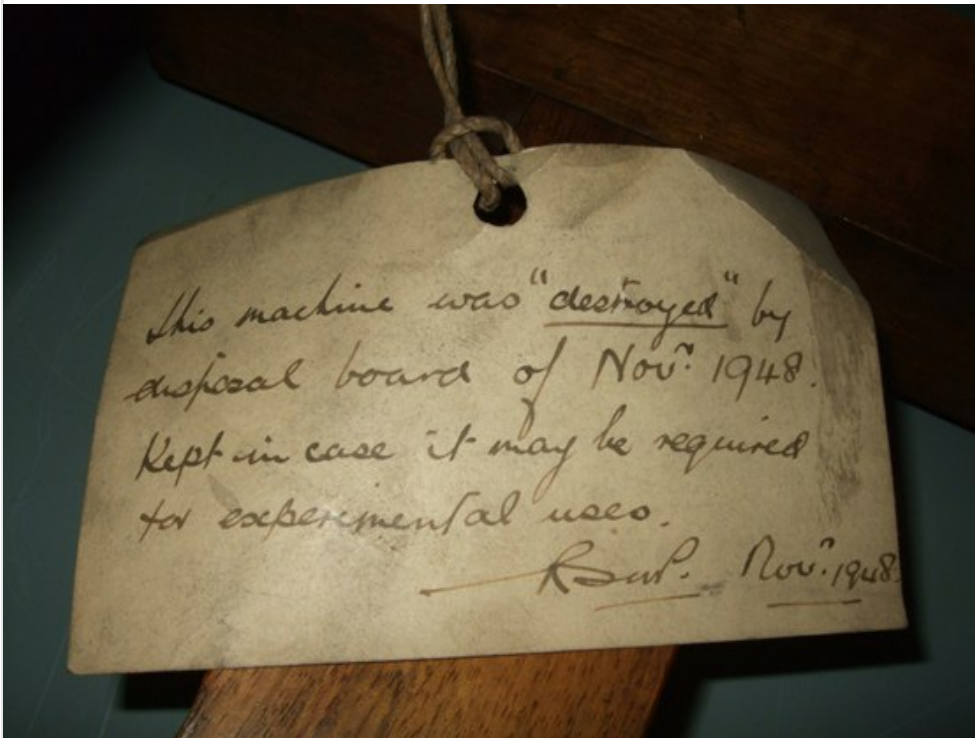 This machine was "destroyed" by
disposal board of Novr. 1948.
Kept in case it may be required
for experimental uses.
Novr. 1948.